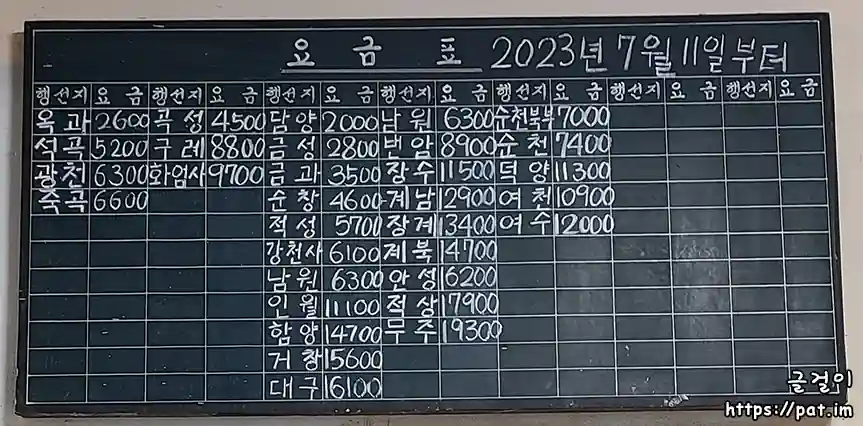 요 금 표 2023년 7월 11일부터
행선지 요 금 행선지 요 금 행선지 요 금 행선지 요 금 행선지 요 금 행선지 요 금 행선지 요 금
옥과 2600 곡성 4500 담양 2000 남원 6300 순천북부 7000
석곡 5200 구례 8800 금성 2800 번암 8900 순천 7400
광천 6300 화엄사 9700 금과 3500 장수 11500 덕양 11300
죽곡 6600 순창 4600 계남 12900 여천 10900
적성 5700 장계 13400 여수 12000
강천사 6100 계북 14700
남원 6300 안성 16200
인월 11100 적상 17900
함양 14700 무주 19300
거창 15600
대구 16100
글걸이
https://pat.im